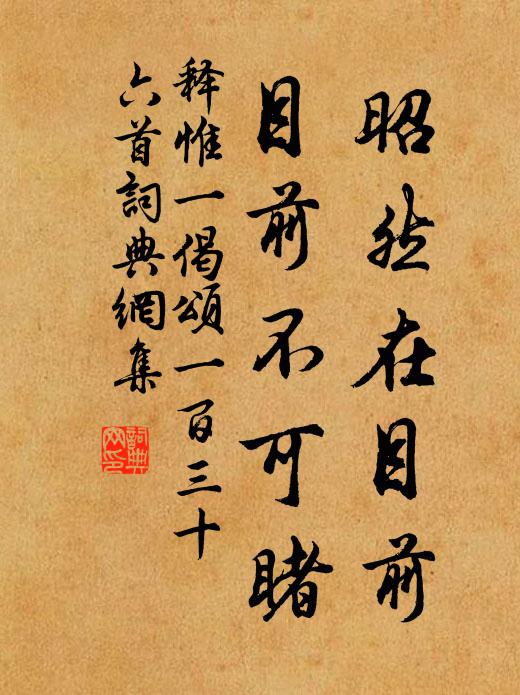 昭然在目前
目前不可睹
释惟一偈颂一百三十
六首詞典網集
詞典網印